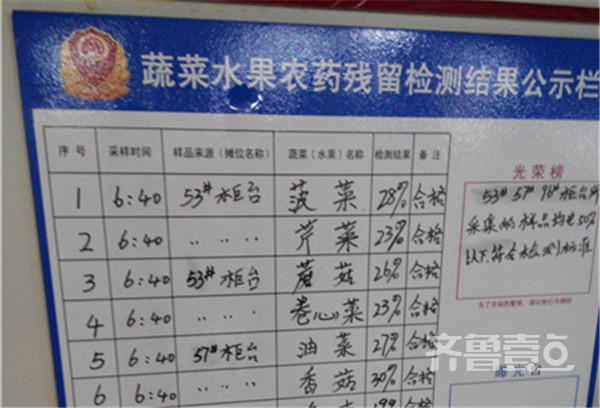 蔬菜水果农药残留检测结果公示栏
序号 采样时间 样品来源（摊位名称） 蔬菜（水果）名称 检测结果 备注
1 6:40 53# 柜台 菠菜 28% 合格
2 6:40 〃 〃 〃 芹菜 23% 合格
3 6:40 53# 柜台 蘑菇 26% 合格
4 6:40 〃 〃 〃 卷心菜 23% 合格
5 6:40 57# 柜台 油菜 27% 合格
6 6:40 〃 〃 〃 香菇 30% 合格
光荣榜
53# 57# 96# 柜台所
采集的样品均在50%
以下符合检测标准
齐鲁壹点
曝光台